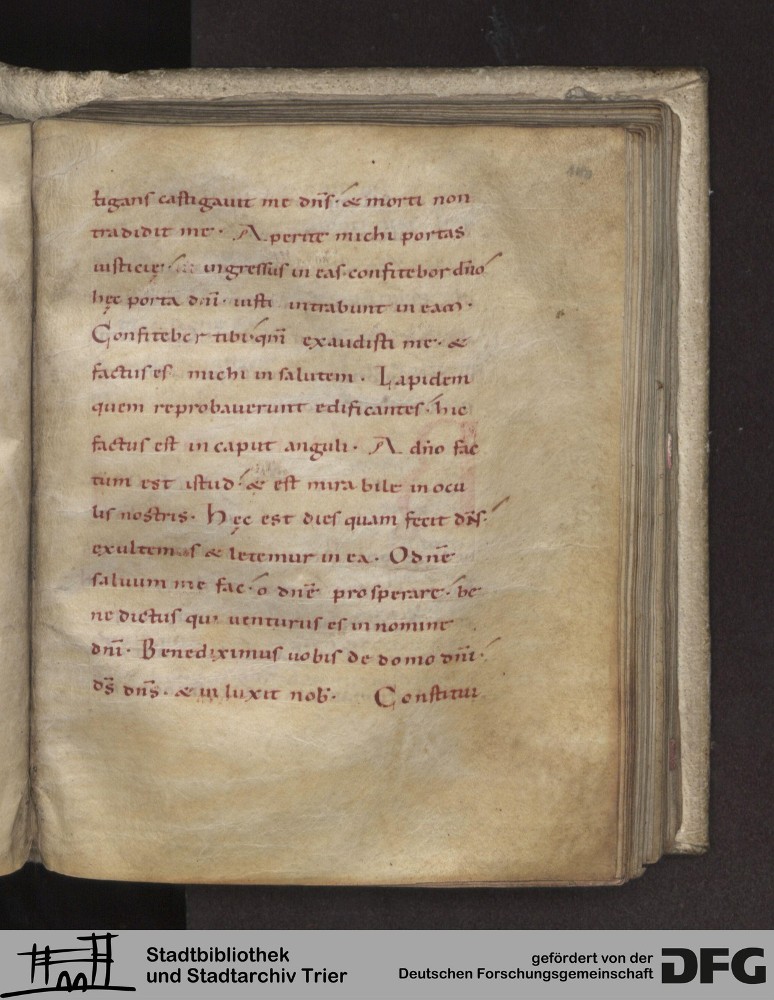 tigans castigavit me dn̄s· & morti non
tradidit me· Aperite michi portas
iusticie· ingressus in eas confitebor dn̄o
hęc porta dn̄i· iusti intrabunt in eam·
Confitebor tibi qm̄ exaudisti me· &
factus es michi in salutem· Lapidem
quem reprobaverunt edificantes· hic
factus est in caput anguli· A dn̄o fac
tum est istud· & est mirabile in ocu
lis nostris· Hęc est dies quam fecit dn̄s·
exultemus & letemur in ea· O dn̄e
salvum me fac· o dn̄e prosperare· be
nedictus qui venturus es in nomine
dn̄i· Benediximus vobis de domo dn̄i·
ds̄ dn̄s· & inluxit nob̄· Constitui
Stadtbibliothek
und Stadtarchiv Trier
gefördert von der
Deutschen Forschungsgemeinschaft
DFG